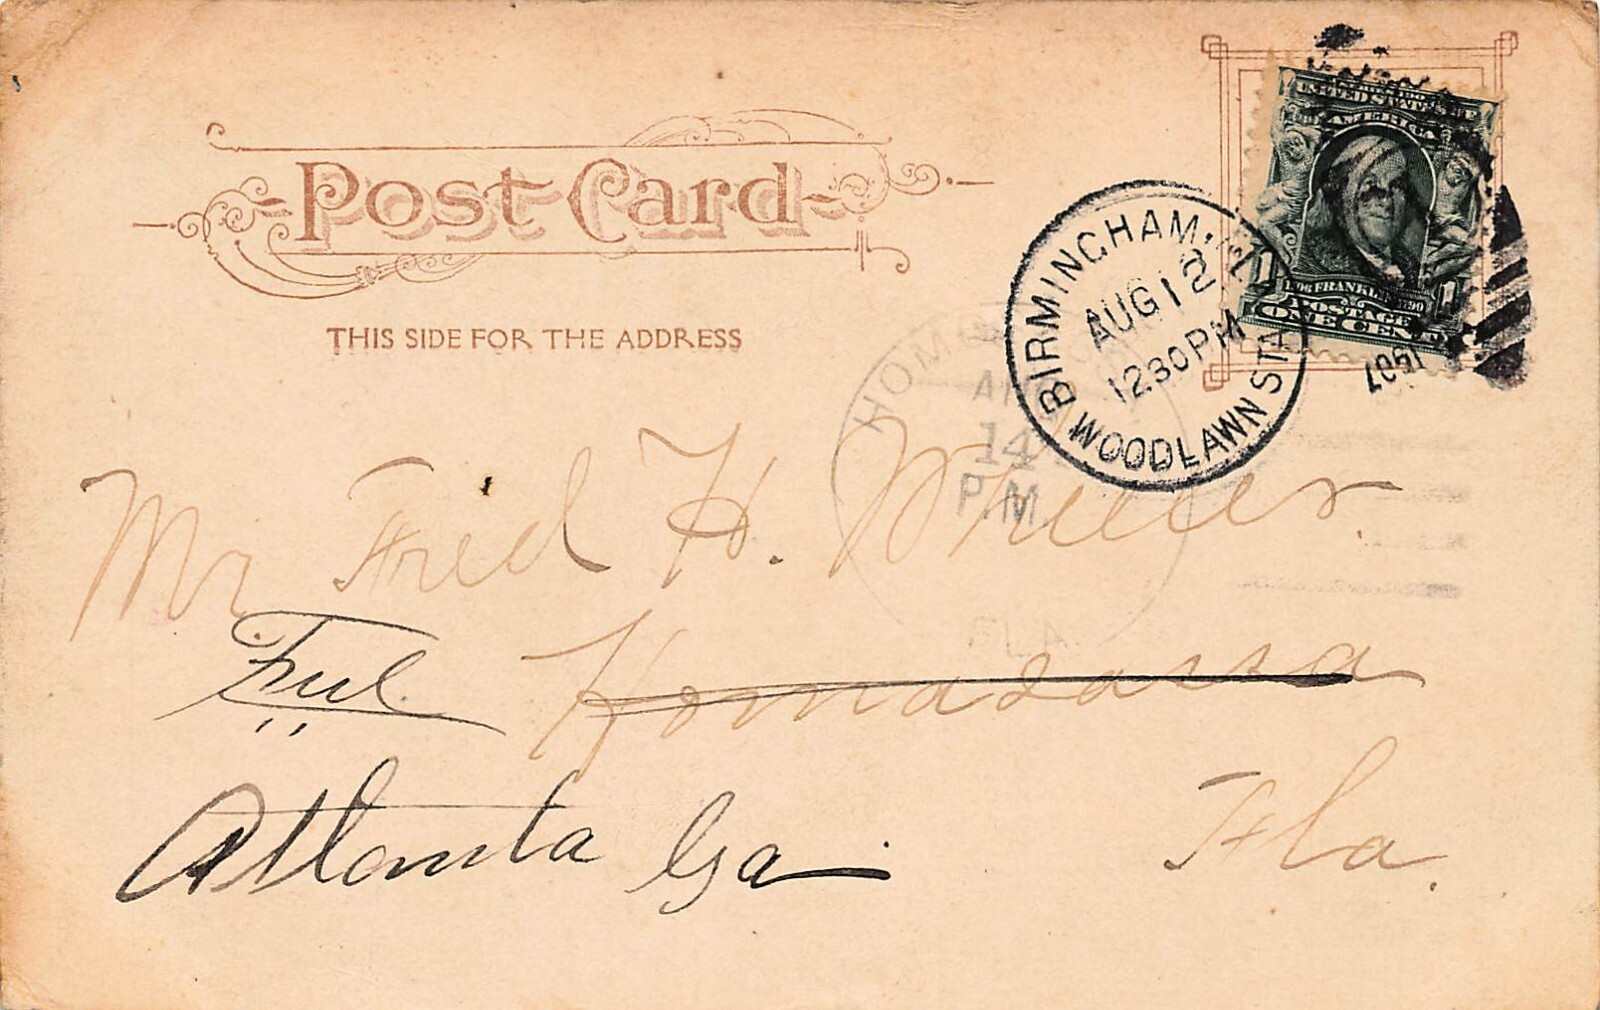 Post Card
THIS SIDE FOR THE ADDRESS
UNITED STATES OF
AMERICA
1706 FRANKLIN 1790
POSTAGE
1 ONE CENT 1
BIRMINGHAM,
AUG 12
12 30 PM
WOODLAWN STA
1907
14
P.M
FLA.
Mr Fred H.
Homasassa
Fla.
Atlanta Ga